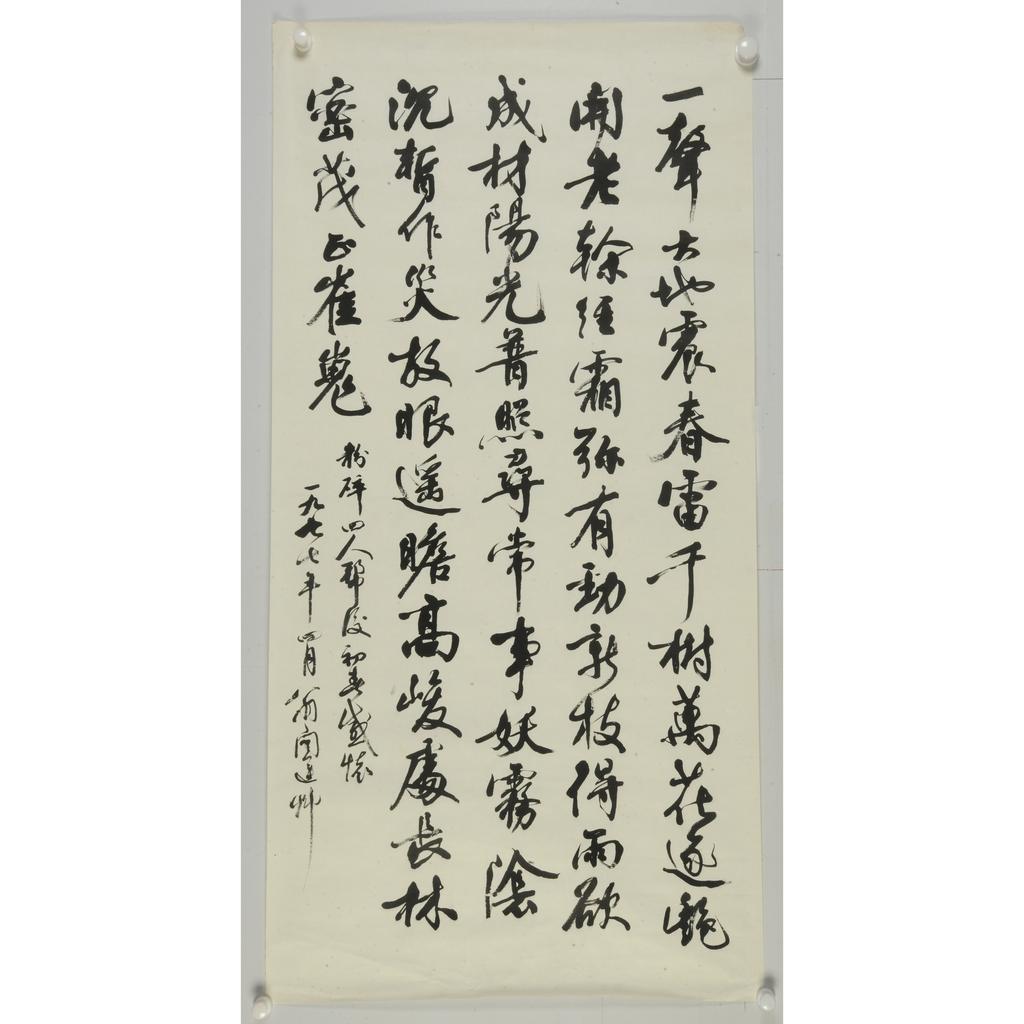 一聲大地震春雷千樹萬花逐艷
開老榦經霜弥有勁新枝得雨欲
成材陽光普照尋常事妖霧陰
沉暫作災放眼遥瞻高峻處長林
密茂正崔嵬
粉碎四人幫後初春感懷
一九七七年四月翁闓運草